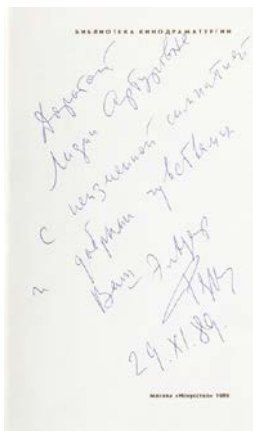 БИБЛИОТЕКА КИНОДРАМАТУРГИИ
Дорогой
Лидии Артуровне
с неизменной симпатией
и добрыми чувствами
Ваш Эльдар
29.XI.89.
Москва «Искусство» 1989